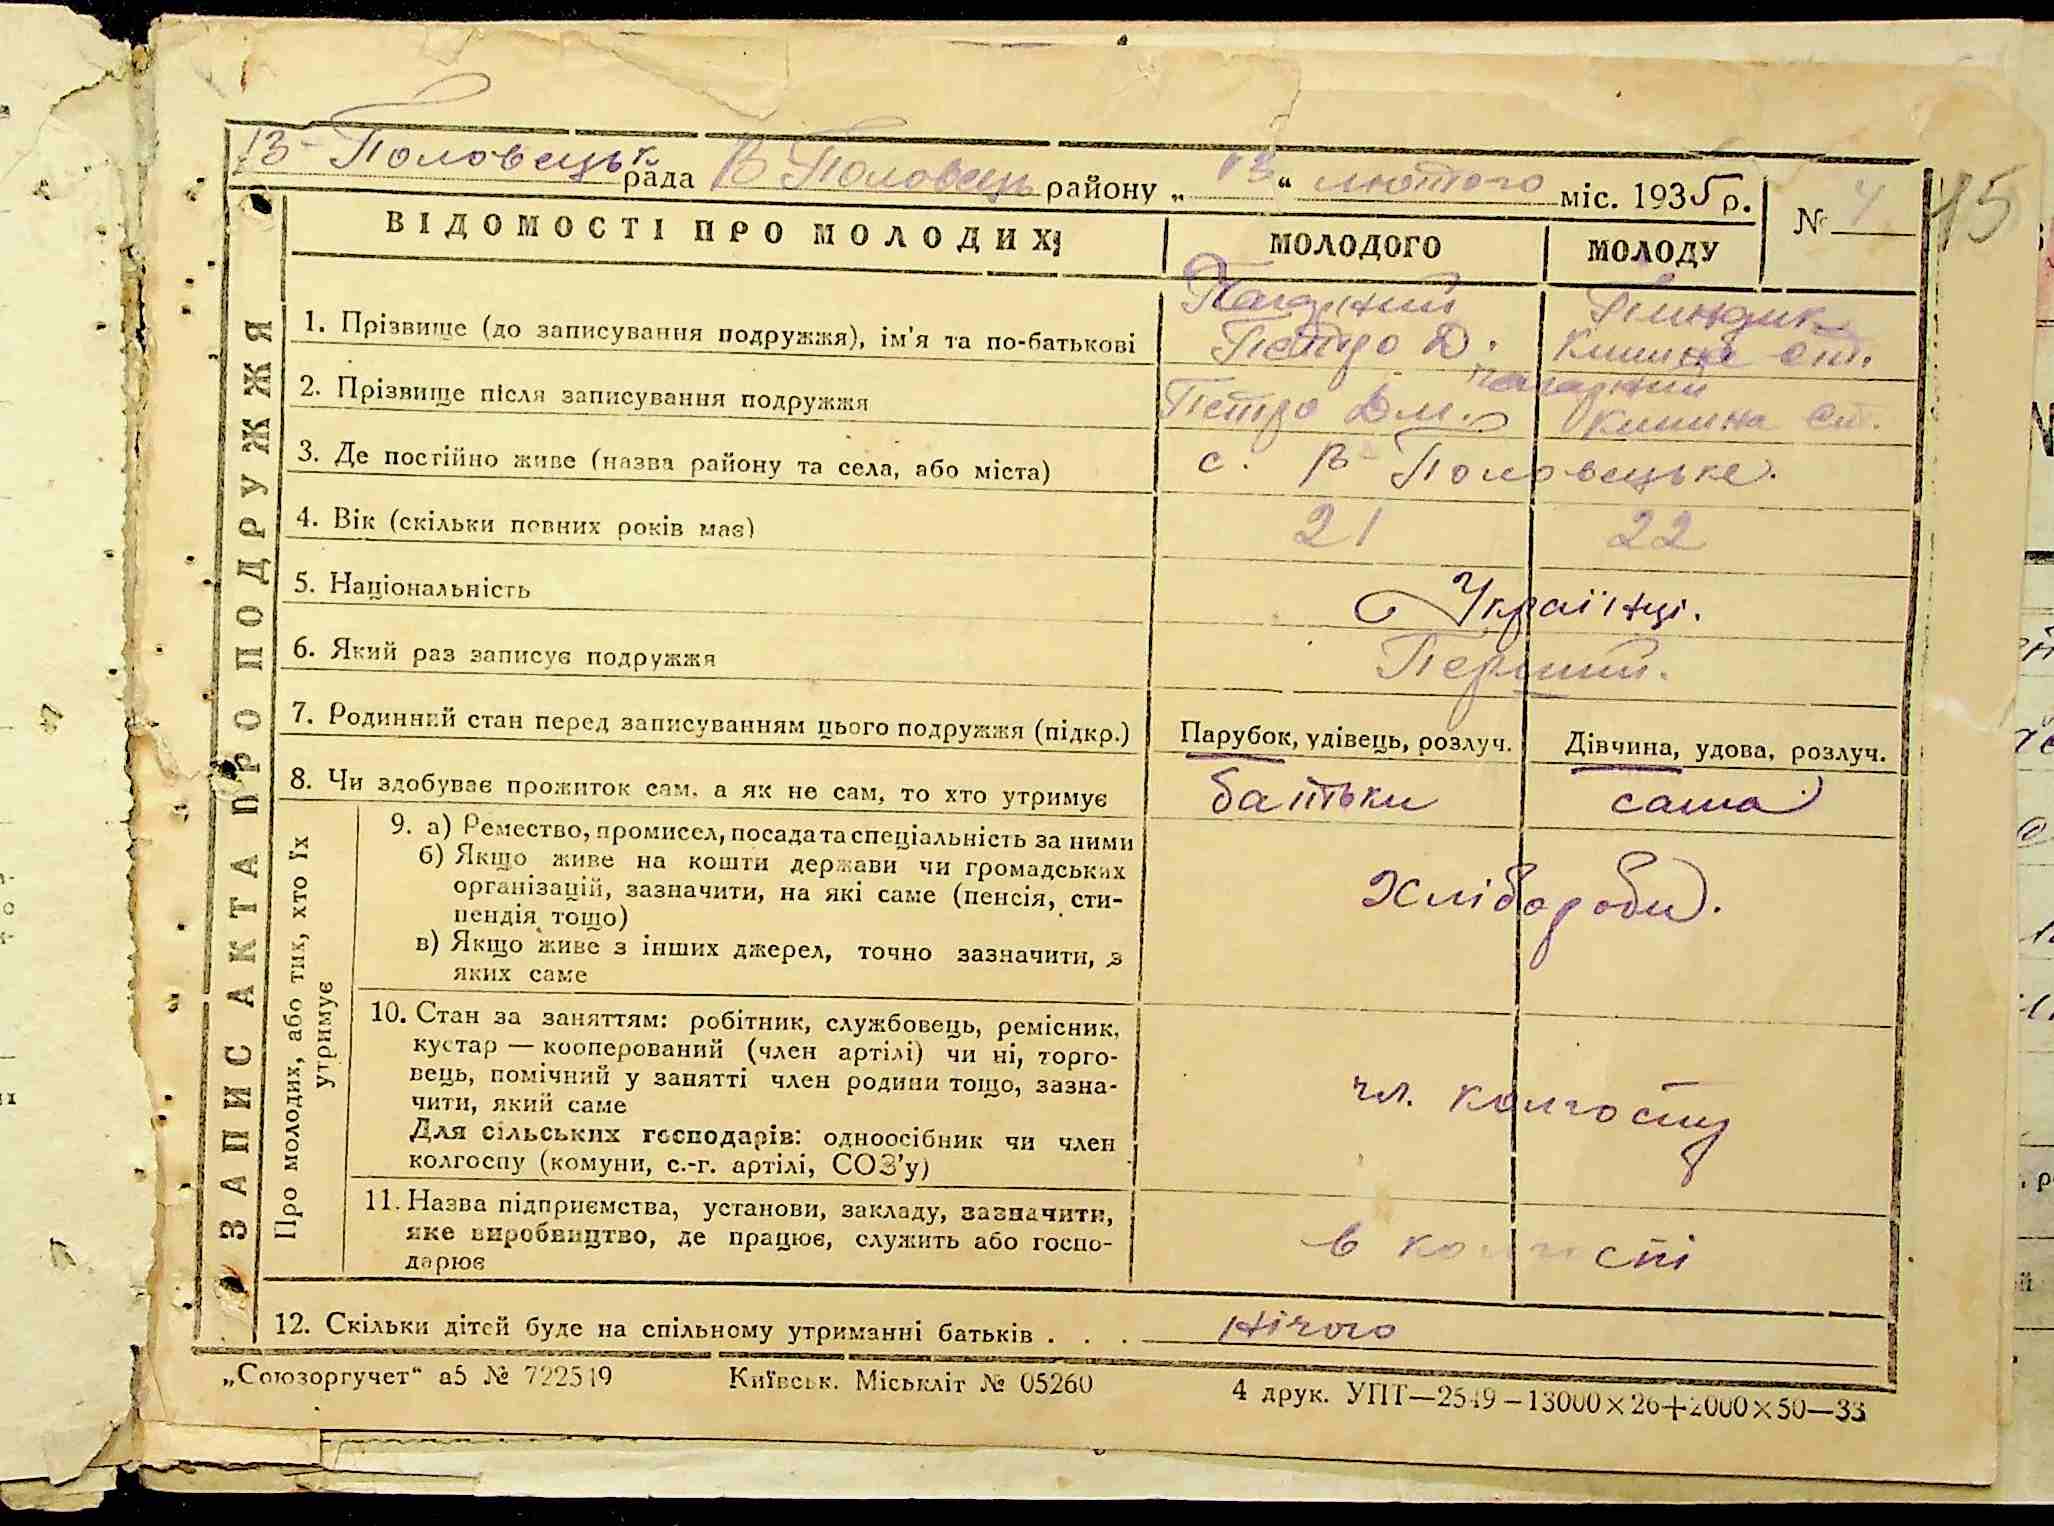 В-Половецьк. рада В Половець району „13“ лютого міс. 1935 р.
№ 4
15
ЗАПИС АКТА ПРО ПОДРУЖЖЯ
ВІДОМОСТІ ПРО МОЛОДИХ
МОЛОДОГО
МОЛОДУ
1. Прізвище (до записування подружжя), ім'я та по-батькові
Петро Д.
2. Прізвище після записування подружжя
Петро Дм.
3. Де постійно живе (назва району та села, або міста)
с. В-Половецьке.
4. Вік (скільки повних років має)
21
22
5. Національність
Українці.
6. Який раз записує подружжя
Перший.
7. Родинний стан перед записуванням цього подружжя (підкр.)
Парубок, удівець, розлуч.
Дівчина, удова, розлуч.
8. Чи здобуває прожиток сам, а як не сам, то хто утримує
батьки
сама
Про молодих, або тих, хто їх
утримує
9. а) Ремество, промисел, посада та спеціальність за ними
б) Якщо живе на кошти держави чи громадських
організацій, зазначити, на які саме (пенсія, сти-
пендія тощо)
в) Якщо живе з інших джерел, точно зазначити, з
яких саме
Хлібороби.
10. Стан за заняттям: робітник, службовець, ремісник,
кустар — кооперований (член артілі) чи ні, торго-
вець, помічний у занятті член родини тощо, зазна-
чити, який саме
Для сільських господарів: одноосібник чи член
колгоспу (комуни, с.-г. артілі, СОЗ'у)
чл. колгоспу
11. Назва підприємства, установи, закладу, зазначити,
яке виробництво, де працює, служить або госпо-
дарює
в колгоспі
12. Скільки дітей буде на спільному утриманні батьків . . .
нічого
„Союзоргучет“ а5 № 722519
Київськ. Міськліт № 05260
4 друк. УПТ—2549—13000×26+2000×50—33